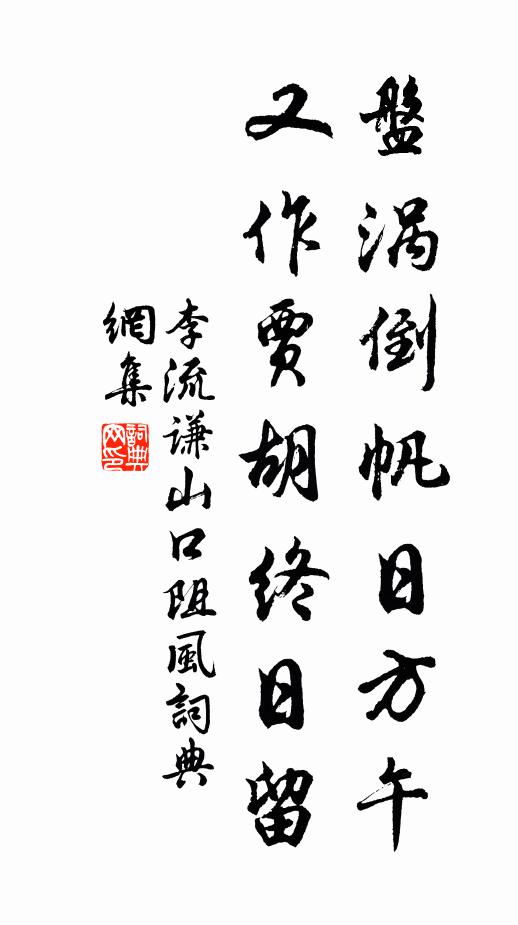 盤渦倒帆日方午
又作賈胡終日留
李流謙山口阻風詞典
網集
詞典网印